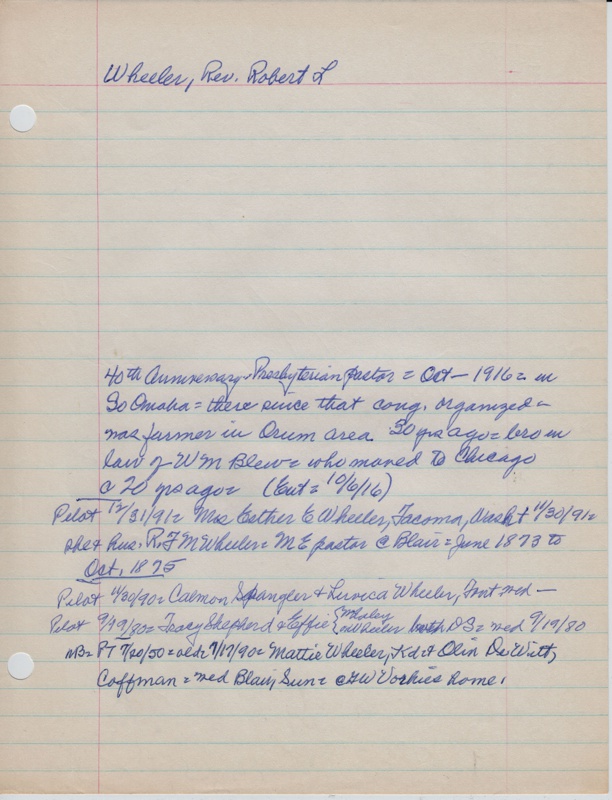 Wheeler, Rev. Robert L
40th Anniversary - Presbyterian pastor = Oct - 1916 = in
So Omaha = there since that cong. organized =
was farmer in Orum area 30 yrs ago = bro in
law of W M Blew = who moved to Chicago
c 20 yrs ago = (Ent = 10/6/16)
Pilot 12/31/91 = Mrs Esther E Wheeler, Tacoma, Wash + 11/30/91 =
she + hus = R. F M Wheeler = M E pastor @ Blair = June 1873 to
Oct, 1875
Pilot 11/20/90 = Calmon Spangler + Luvica Wheeler, Font wed -
Pilot 9/19/80 = Tracy Shepherd + Effie {Whaley
Wheeler both DS = wed 9/19/80
MB = PT 7/20/50 = old = 7/17/90 = Mattie Wheeler, Kd + Olin De Witt,
Coffman = wed Blair, Sun = @ G W Vorhies home.